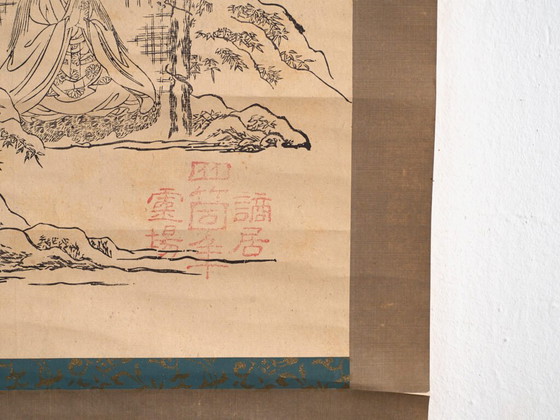 謫居
四箇年
霊場